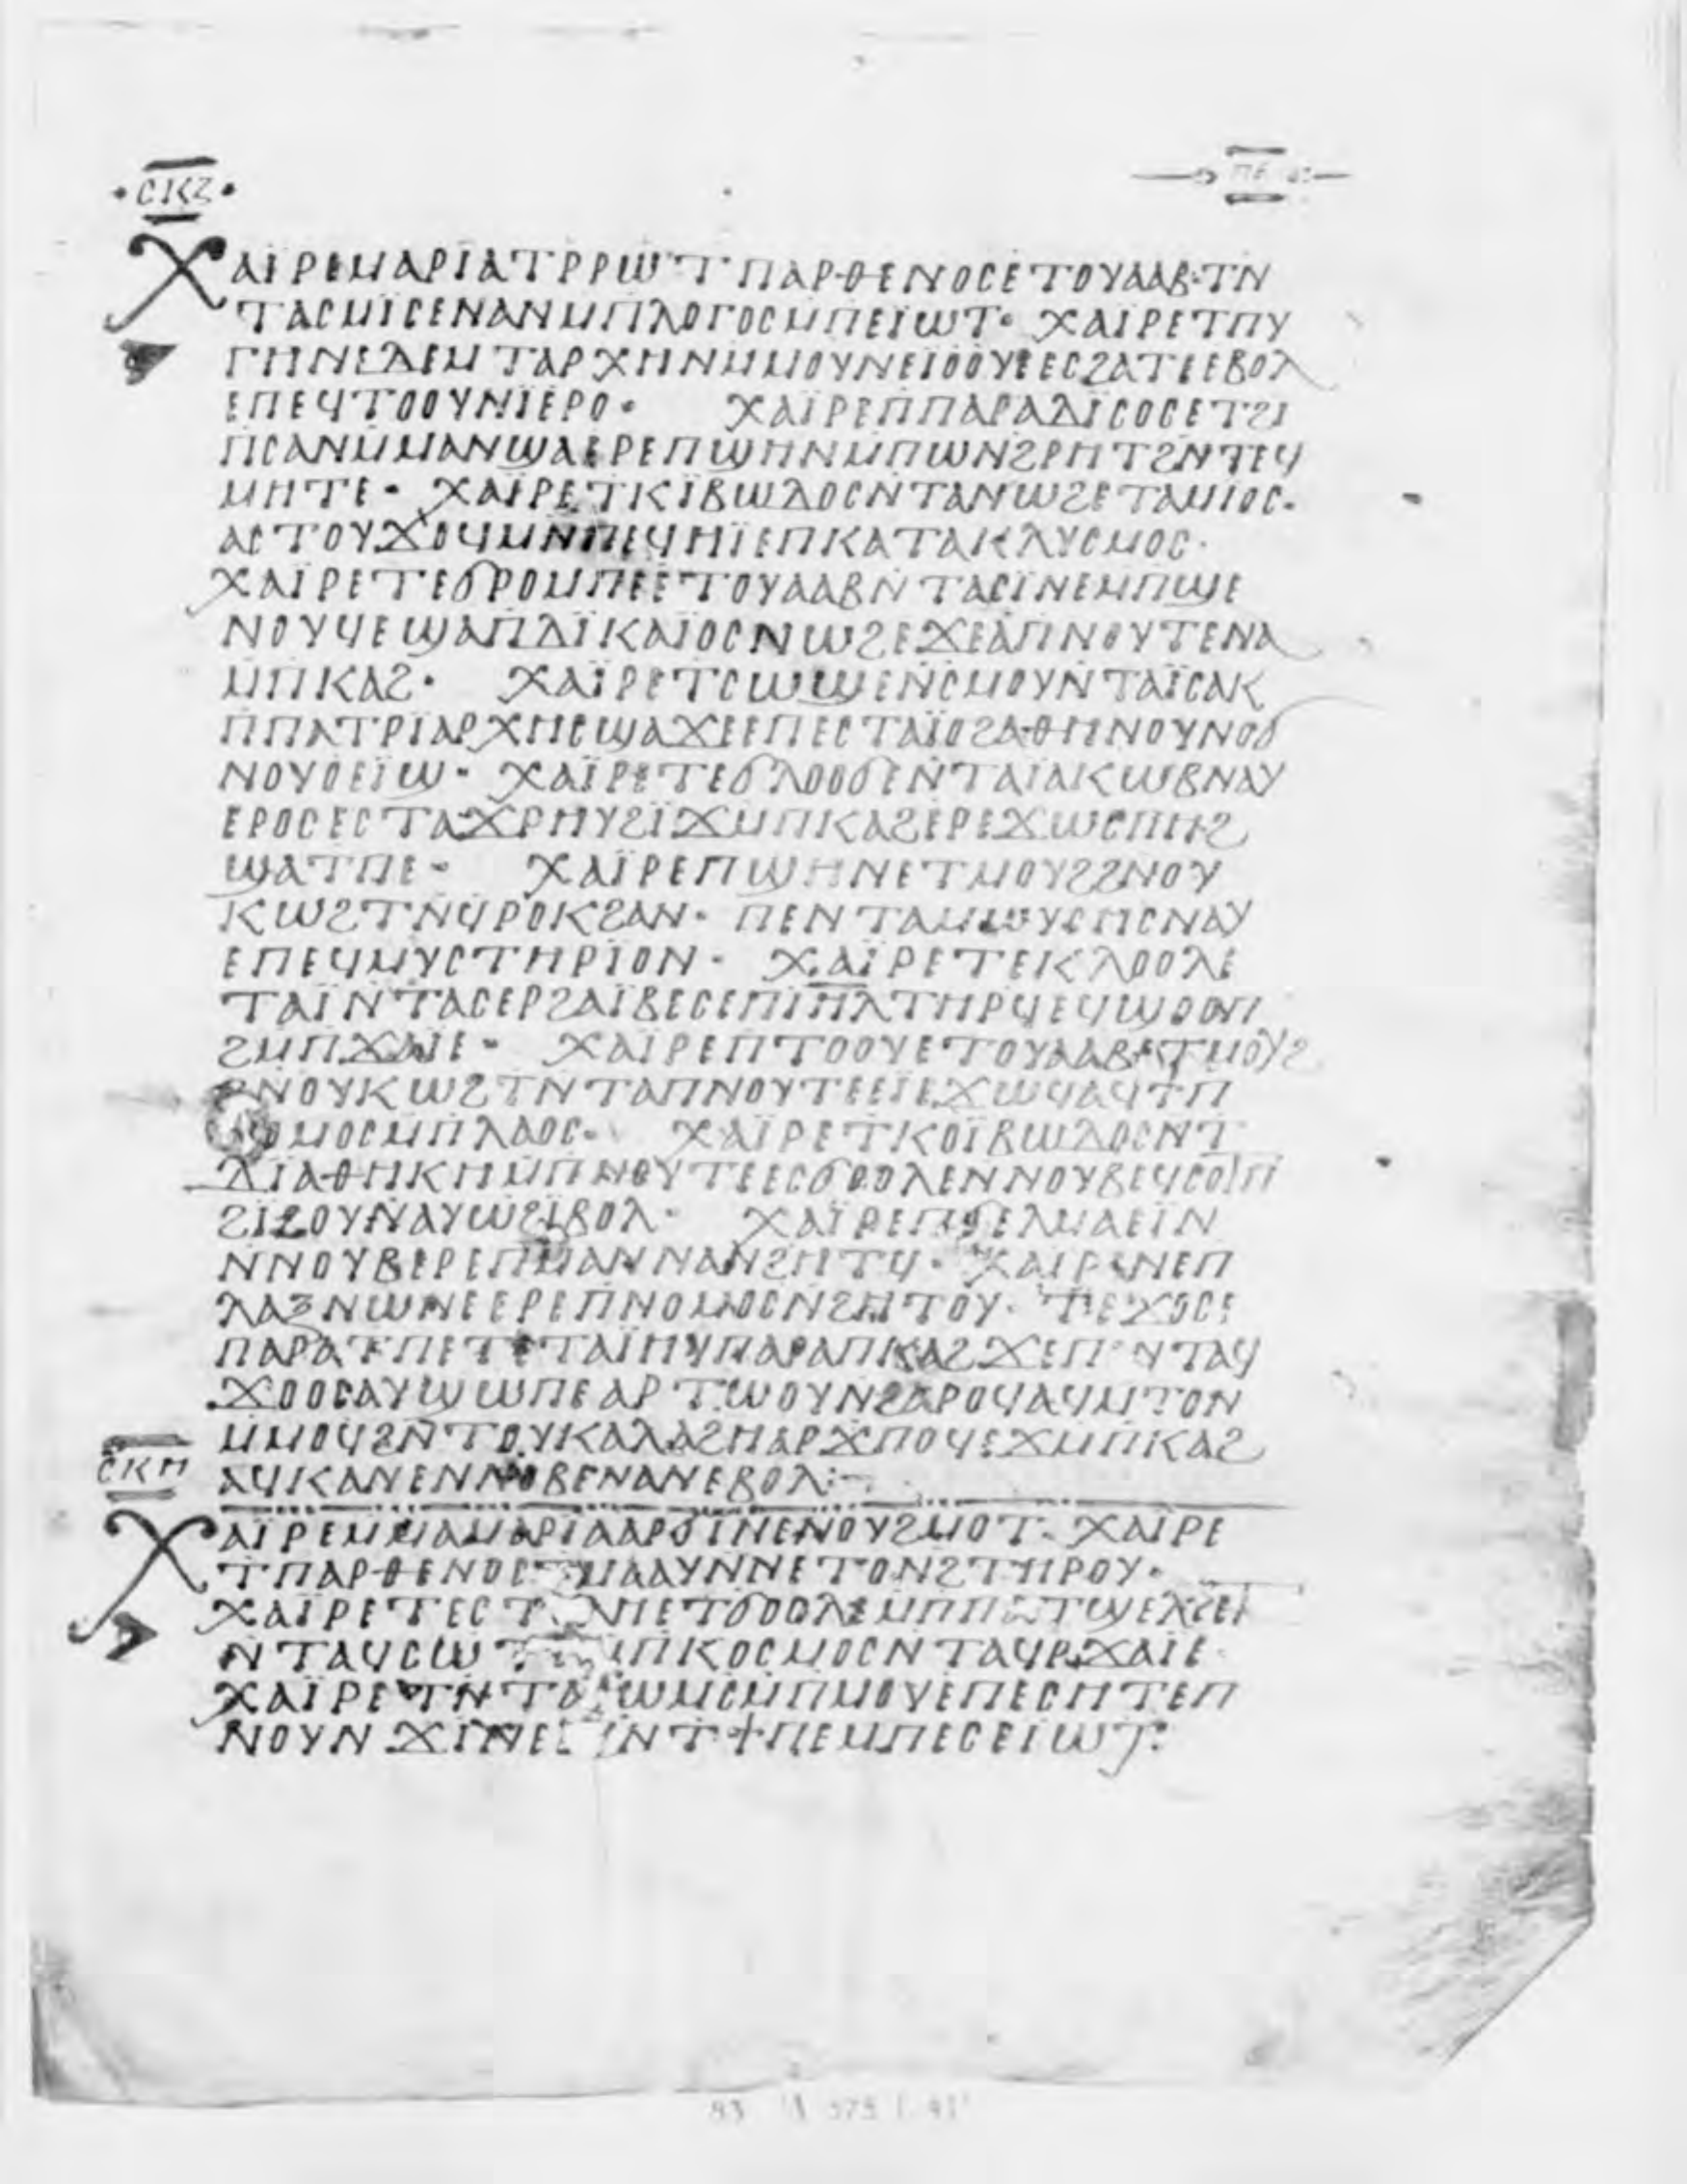 ⲤⲔⲌ
ⲠⲈ
ⲬⲀⲒ̈ⲢⲈⲘⲀⲢⲒⲀⲦⲢⲢⲰ·Ⲧ ⲠⲀⲢⲐⲈⲚⲞⲤⲈⲦⲞⲨⲀⲀⲂ·ⲦⲚ
ⲦⲀⲤⲘⲒⲤⲈⲚⲀⲚⲘⲠⲖⲞⲅⲞⲤⲘⲠⲈⲒ̈ⲰⲦ· ⲬⲀⲒ̈ⲢⲈⲦⲠⲨ
ⲄⲎⲚⲈⲆⲈⲘ ⲦⲀⲢⲬⲎⲚⲘⲘⲞⲨⲚⲈⲒ̈ⲞⲞⲨⲈⲈⲤϨⲀⲦⲈⲈⲂⲞⲖ
ⲈⲠⲈϤⲦⲞⲞⲨⲚⲒ̈ⲈⲢⲞ· ⲬⲀⲒ̈ⲢⲈⲠⲠⲀⲢⲀⲆⲒ̈ⲤⲞⲤⲈⲦϨⲒ
ⲠⲤⲀⲚⲘⲘⲀⲚϢⲀⲈⲢⲈⲠϢⲎⲚⲘⲠⲰⲚϨⲢⲎⲦϨⲚⲦⲈϤ
ⲘⲎⲦⲈ· ⲬⲀⲒ̈ⲢⲈⲦⲔⲒ̈ⲂⲰⲆⲞⲤⲚⲦⲀⲚⲰϨⲈⲦⲀⲘⲒⲞⲤ·
ⲀⲤⲦⲞⲨϪⲞϤⲘⲚⲠⲈϤⲎⲒ̈ⲈⲠⲔⲀⲦⲀⲔⲖⲨⲤⲘⲞⲤ·
ⲬⲀⲒ̈ⲢⲈⲦⲈϬⲢⲞⲘⲠⲈⲈⲦⲞⲨⲀⲀⲂⲚⲦⲀⲤⲒⲚⲈⲘⲠϢⲈ
ⲚⲞⲨϤⲈϢⲀⲠⲆⲒ̈ⲔⲀⲒ̈ⲞⲤⲚⲰϨⲈϪⲈⲀⲠⲚⲞⲨⲦⲈⲚⲀ
ⲘⲠⲔⲀϨ· ⲬⲀⲒ̈ⲢⲈⲦⲤⲰϢⲈⲚⲤⲘⲞⲨⲚⲦⲀⲒ̈ⲤⲀⲔ
ⲠⲠⲀⲦⲢⲒⲀⲢⲬⲎⲤϢⲀϪⲈⲈⲠⲈⲤⲦⲀⲒ̈ⲞϨⲀⲐⲎⲚⲞⲨⲚⲞϬ
ⲚⲞⲨⲞⲈⲒ̈Ϣ· ⲬⲀⲒ̈ⲢⲈⲦⲈϬⲖⲞⲞϬⲈⲚⲦⲀⲒⲀⲔⲰⲂⲚⲀⲨ
ⲈⲢⲞⲤⲈⲤⲦⲀϪⲢⲎⲨϨⲒ̈ϪⲘⲠⲔⲀϨⲈⲢⲈϪⲰⲤⲠⲎϨ
ϢⲀⲦⲠⲈ· ⲬⲀⲒ̈ⲢⲈⲠϢⲎⲚⲈⲦⲘⲞⲨϨϨⲚⲞⲨ
ⲔⲰϨⲦⲚϤⲢⲞⲔϨⲀⲚ· ⲠⲈⲚⲦⲀⲘⲰⲨⲤⲎⲤⲚⲀⲨ
ⲈⲠⲈϤⲘⲨⲤⲦⲎⲢⲒ̈ⲞⲚ· ⲬⲀⲒ̈ⲢⲈⲦⲈⲔⲖⲞⲞⲖⲈ
ⲦⲀⲒ̈ⲚⲦⲀⲤⲈⲢϨⲀⲒ̈ⲂⲈⲤⲈⲠⲒⲎⲖⲦⲎⲢϤⲈϤϢⲞⲞⲠ
ϨⲘⲠϪⲀⲒⲈ· ⲬⲀⲒ̈ⲢⲈⲠⲦⲞⲞⲨⲈⲦⲞⲨⲀⲀⲂⲈⲦⲘⲞⲨϨ
ϨⲚⲞⲨⲔⲰϨⲦⲚⲦⲀⲠⲚⲞⲨⲦⲈⲈⲒⲈϪⲰϤⲀϤϮⲠ
ⲚⲞⲘⲞⲤⲘⲠⲖⲀⲞⲤ· ⲬⲀⲒ̈ⲢⲈⲦⲔⲞⲒ̈ⲂⲰⲆⲞⲤⲚⲦ
ⲆⲒⲀⲐⲎⲔⲎⲘⲠⲚⲞⲨⲦⲈⲈⲤϬⲞⲞⲖⲈⲚⲚⲞⲨⲂⲈϤⲤⲞⲦⲠ
ϨⲒϨⲞⲨⲚⲀⲨⲰϨⲒⲂⲞⲖ· ⲬⲀⲒ̈ⲢⲈⲠϬⲈⲖⲘⲀⲈⲒⲚ
ⲚⲚⲞⲨⲂⲈⲢⲈⲠⲘⲀⲚⲚⲀⲚϨⲎⲦϤ· ⲬⲀⲒⲢⲈⲚⲈⲠ
ⲖⲀⲜⲚⲰⲚⲈⲈⲢⲈⲠⲚⲞⲘⲞⲤⲚϨⲎⲦⲞⲨ· ⲦⲈϪⲞⲤⲈ
ⲠⲀⲢⲀⲦⲠⲈⲦⲈⲦⲀⲒ̈ⲎⲨⲠⲀⲢⲀⲠⲔⲀϨϪⲈⲠⲈⲚⲦⲀϤ
ϪⲞⲞⲤⲀⲨϢⲰⲠⲈⲀⲢⲦⲰⲞⲨⲚϨⲀⲢⲞϤⲀϤⲘⲦⲞⲚ
ⲘⲘⲞϤϨⲚⲦⲞⲨⲔⲀⲖⲀϨⲎⲀⲢϪⲠⲞϤⲈϪⲘⲠⲔⲀϨ
ⲤⲔⲎ
ⲀϤⲔⲀⲚⲈⲚⲚⲞⲂⲈⲚⲀⲚⲈⲂⲞⲖ:
ⲬⲀⲒ̈ⲢⲈⲘⲘⲀⲘⲀⲢⲒⲀⲀⲢϬⲒⲚⲈⲚⲞⲨϨⲘⲞⲦ· ⲬⲀⲒ̈ⲢⲈ
ⲦⲠⲀⲢⲐⲈⲚⲞⲤ ⲘⲀⲀⲨⲚⲚⲈⲦⲞⲚϨⲦⲎⲢⲞⲨ·
ⲬⲀⲒ̈ⲢⲈⲦⲈⲤⲦ ⲈⲦϬⲞⲞⲖⲈⲘⲠ
ⲚⲦⲀϤⲤⲰⲦ ⲠⲔⲞⲤⲘⲞⲤⲚⲦⲀϤⲢϪⲀⲒⲈ
ⲬⲀⲒ̈ⲢⲈ ⲰⲘⲤⲘⲠⲘⲞⲨⲈⲠⲈⲤⲎⲦⲈⲠ
ⲚⲞⲨⲚ ⲚⲦⲠⲈⲘⲠⲈⲤⲈⲒⲰⲦ: